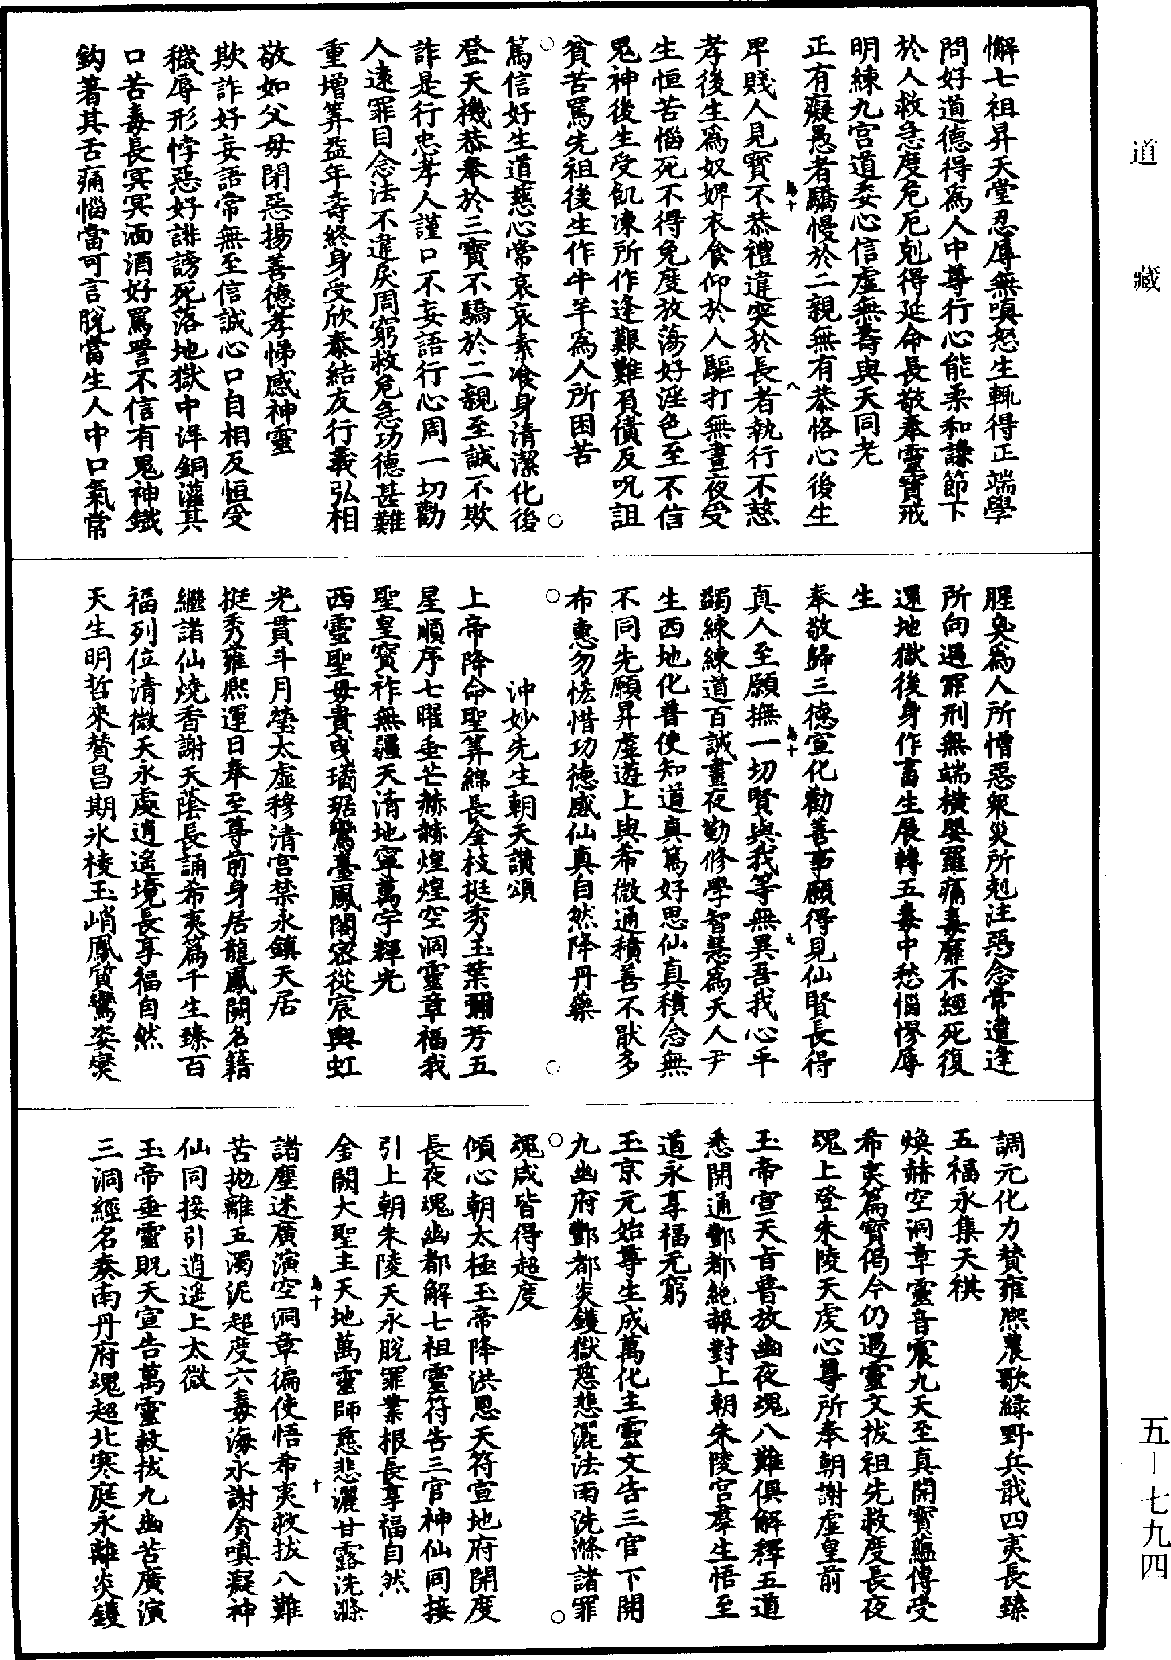 道藏
懈七祖昇天堂忍辱無嗔怒生輒得正端學
問好道德得為人中尊行心能柔和謙節下
於人救急度危厄剋得延命長敬奉靈寶戒
明練九宮道委心信虛無壽與天同老
正有癡愚者驕慢於二親無有恭恪心後生
卑賤人見寶不恭禮違突於長者執行不慈
孝後生為奴婢衣食仰於人驅打無晝夜受
生恒苦惱死不得免度放蕩好淫色至不信
鬼神後生受飢凍所作逢艱難負債反呪詛
貧苦罵先祖後生作牛羊為人所困苦
篤信好生道慈心常哀哀素飡身清潔化後
登天機恭奉於三寶不驕於二親至誠不欺
詐是行忠孝人謹口不妄語行心周一切勸
人遠罪目念法不違戾周窮救危急功德甚難
重增筭益年壽終身受欣泰結友行義弘相
敬如父母閉惡揚善德孝悌感神靈
欺詐好妄語常無至信誠心口自相反恒受
穢辱形悖惡好誹謗死落地獄中洋銅灌其
口苦毒長冥冥洒酒好罵詈不信有鬼神鐵
鈎著其舌痛惱當可言脫當生人中口氣常
腥臭為人所憎惡眾災所剋注惡念常遭逢
所向遇罪刑無端橫嬰羅痛毒靡不經死復
還地獄後身作畜生展轉五毒中愁惱慘辱
生
奉敬歸三德宣化勸善事願得見仙賢長得
真人至願撫一切賢與我等無異吾我心平
蠲練練道百誡晝夜勤修學智慧為天人尹
生西地化普使知道真篤好思仙真積念無
不同先願昇虛遊上與希微通積善不猒多
布惠勿悋惜功德感仙真自然降丹藥
沖妙先生朝天讚頌
上帝降命聖筭綿長金枝挺秀玉葉彌芳五
星順序七曜垂芒赫赫煌煌空洞靈章福我
聖皇寶祚無疆天清地寧萬宇輝光
西靈聖母貴曳璚琚鸞臺鳳閣密從宸輿虹
光貫斗月瑩太虛穆清宮禁永鎮天居
挺秀雍熙運日奉至尊前身居龍鳳闕名籍
繼諸仙燒香謝天蔭長誦希夷篇千生臻百
福列位清微天永處逍遙境長享福自然
天生明哲來贊昌期氷棱玉峭鳳質鸞姿燮
調元化力贊雍熙農歌綠野兵戢四夷長臻
五福永集天祺
煥赫空洞章靈音震九天至真開寶蘊傳受
希夷篇寶偈今仍遇靈文拔祖先救度長夜
魂上登朱陵天虔心尋所奉朝謝虛皇前
玉帝宣天旨普放幽夜魂八難俱解釋五道
悉開通酆都絕報對上朝朱陵宮羣生悟至
道永享福无窮
玉京元始尊生成萬化主靈文告三官下開
九幽府酆都炎鑊獄慈悲灑法雨洗滌諸罪
魂咸皆得超度
傾心朝太極玉帝降洪恩天符宣地府開度
長夜魂幽都解七祖靈符告三官神仙同接
引上朝朱陵天永脫罪業根長享福自然
金闕大聖主天地萬靈師慈悲灑甘露洗滌
諸塵迷廣演空洞章徧使悟希夷救拔八難
苦抛離五濁泥超度六毒海永謝貪嗔癡神
仙同接引逍遙上太微
玉帝垂靈貺天宣告萬靈救拔九幽苦廣演
三洞經名奏南丹府魂超北寒庭永離炎鑊
五－七九四